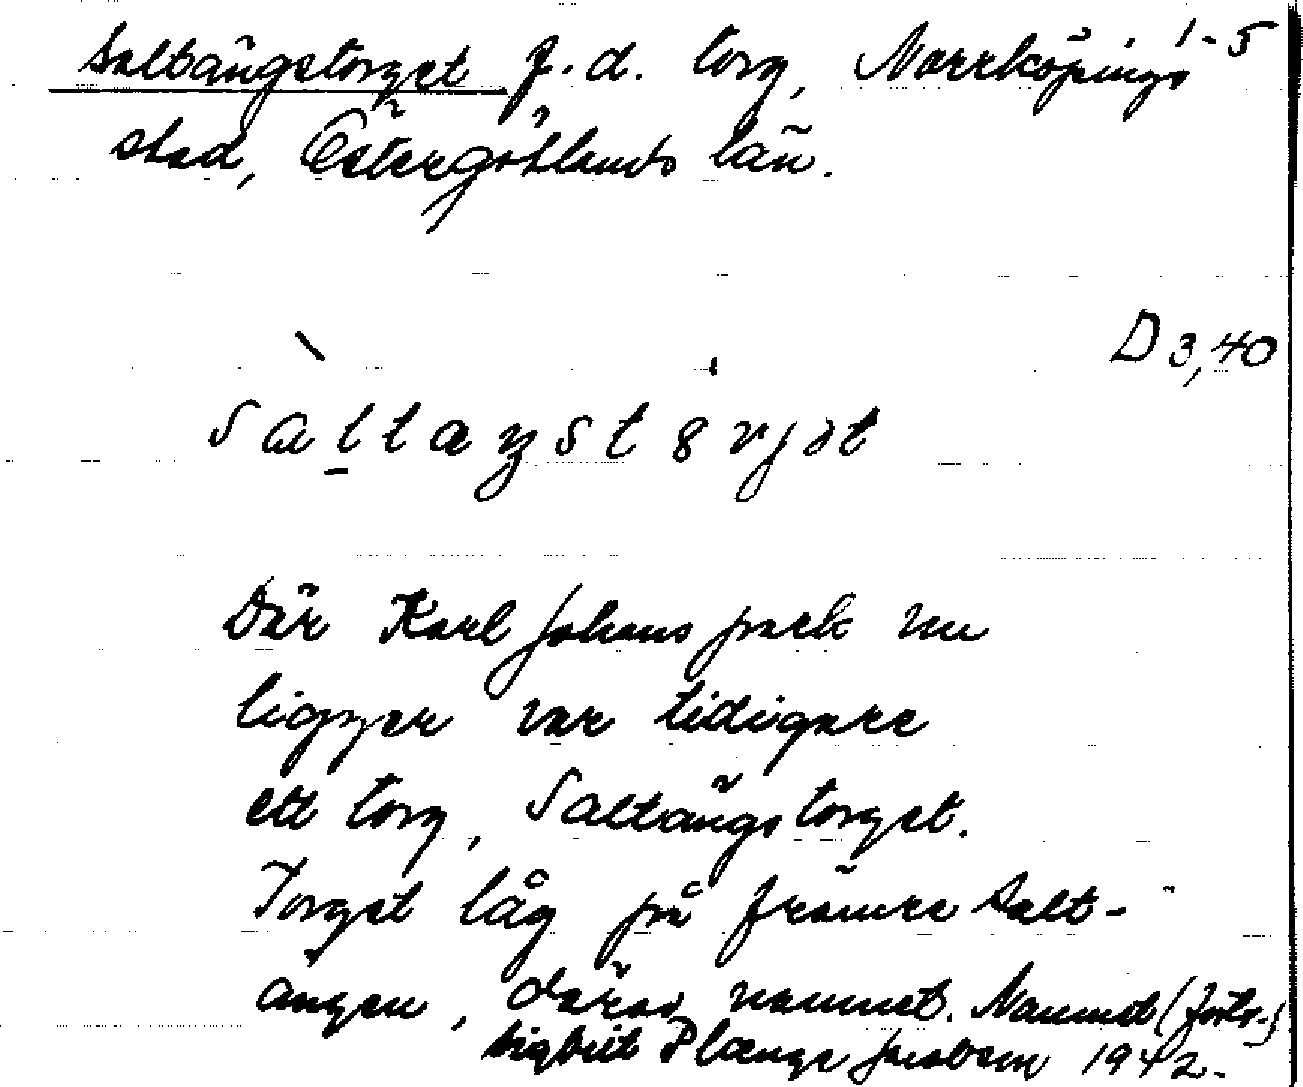 Saltängstorget f.d. torg, Norrköpings 1-5
stad, Östergötlands län.
D 3,40
Där Karl Johans park nu
ligger var tidigare
ett torg, Saltängstorget.
Torget låg på främre Salt-
ängen, därav namnet. Namnet (forts.)
Sigbrit Plænge Jacobson 1942.